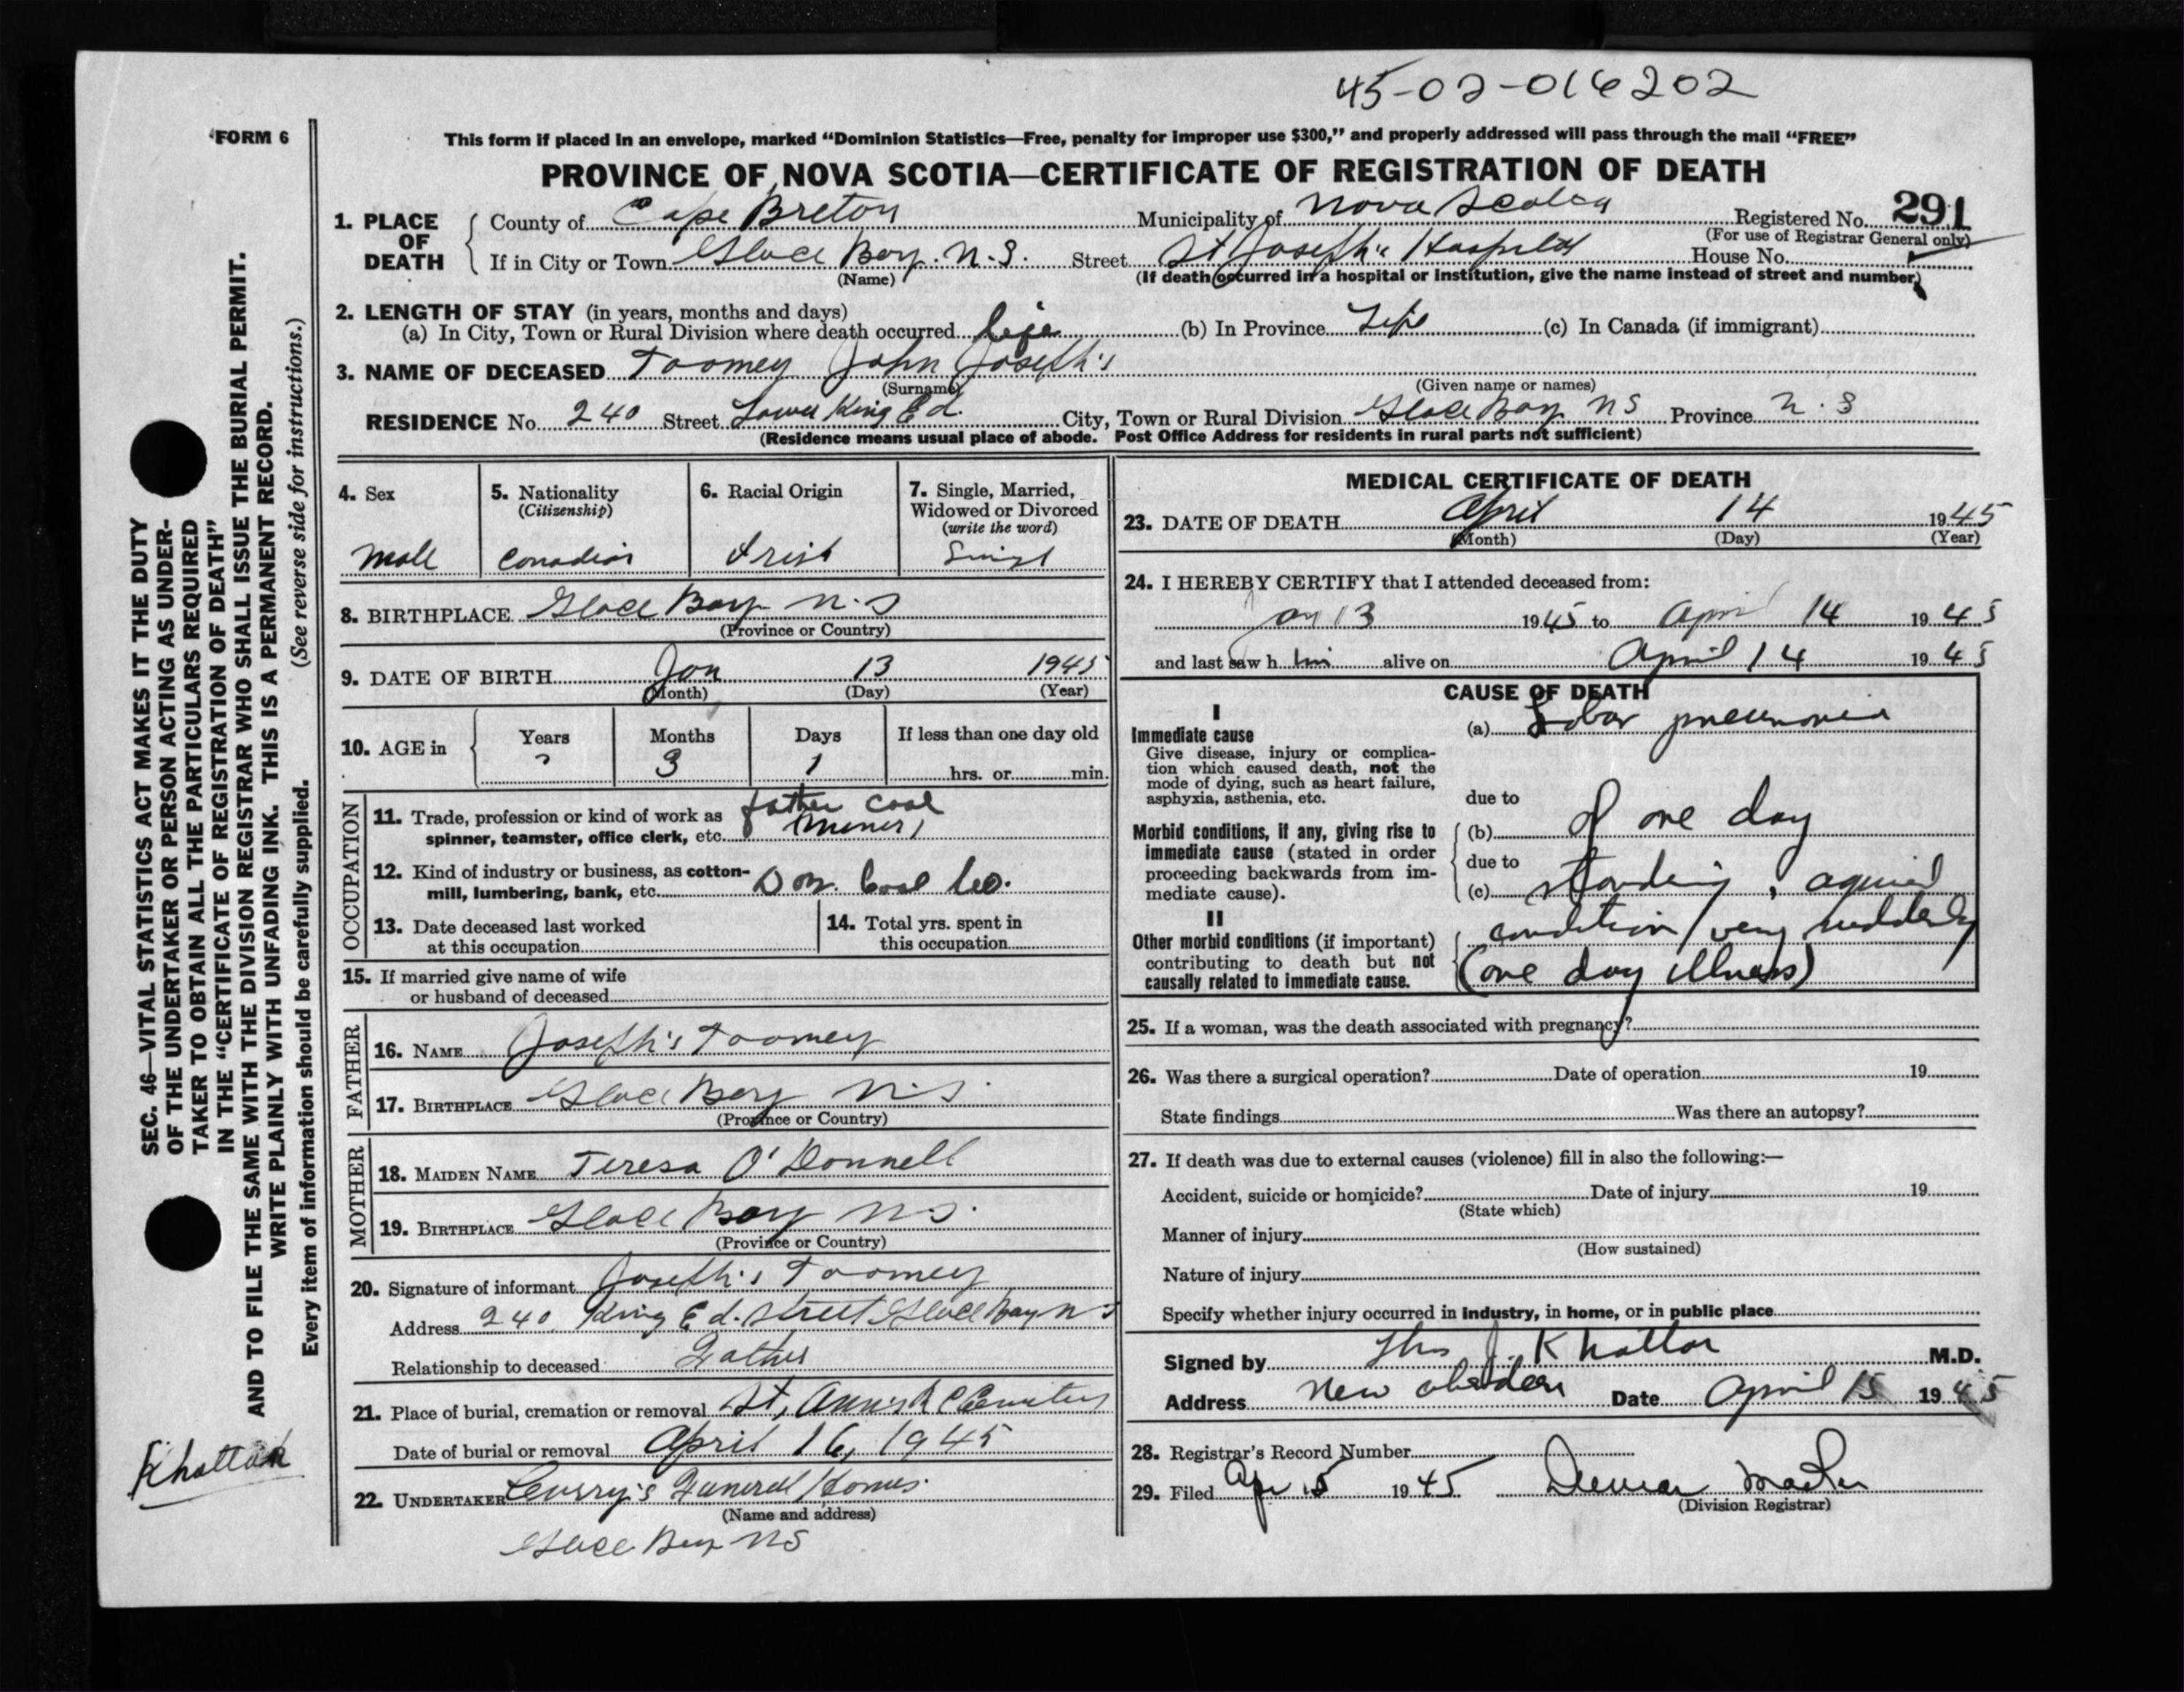 45-02-016202
FORM 6
This form if placed in an envelope, marked “Dominion Statistics—Free, penalty for improper use $300,” and properly addressed will pass through the mail “FREE”
PROVINCE OF NOVA SCOTIA—CERTIFICATE OF REGISTRATION OF DEATH
1. PLACE OF DEATH
County of Cape Breton Municipality of Nova Scotia Registered No. 291
(For use of Registrar General only)
If in City or Town Glace Bay. N.S. Street St Joseph's Hospital House No.
(Name) (If death occurred in a hospital or institution, give the name instead of street and number)
2. LENGTH OF STAY (in years, months and days)
(a) In City, Town or Rural Division where death occurred life (b) In Province Life (c) In Canada (if immigrant)
3. NAME OF DECEASED Toomey John Joseph's
(Surname) (Given name or names)
RESIDENCE No. 240 Street Lower King Ed. City, Town or Rural Division Glace Bay NS Province N.S
(Residence means usual place of abode. Post Office Address for residents in rural parts not sufficient)
4. Sex
Male
5. Nationality
(Citizenship)
Canadian
6. Racial Origin
Irish
7. Single, Married,
Widowed or Divorced
(write the word)
Singl
8. BIRTHPLACE Glace Bay N.S
(Province or Country)
9. DATE OF BIRTH Jan 13 1945
(Month) (Day) (Year)
10. AGE in Years Months Days If less than one day old
3 1 hrs. or min.
OCCUPATION
11. Trade, profession or kind of work as
spinner, teamster, office clerk, etc. father coal
(miner)
12. Kind of industry or business, as cotton-
mill, lumbering, bank, etc. Dom. Coal Co.
13. Date deceased last worked
at this occupation
14. Total yrs. spent in
this occupation
15. If married give name of wife
or husband of deceased
FATHER
16. NAME Joseph's Toomey
17. BIRTHPLACE Glace Bay N.S.
(Province or Country)
MOTHER
18. MAIDEN NAME Teresa O'Donnell
19. BIRTHPLACE Glace Bay N.S.
(Province or Country)
20. Signature of informant Joseph's Toomey
Address 240 King Ed. Street Glace Bay N S
Relationship to deceased Father
21. Place of burial, cremation or removal St, Ann's R C Cemetery
Date of burial or removal April 16, 1945
22. UNDERTAKER Curry's Funeral Homes
(Name and address)
Glace Bay NS
MEDICAL CERTIFICATE OF DEATH
23. DATE OF DEATH April 14 1945
(Month) (Day) (Year)
24. I HEREBY CERTIFY that I attended deceased from:
Jan 13 1945 to April 14 1945
and last saw h im alive on April 14 1945
CAUSE OF DEATH
I
Immediate cause
Give disease, injury or complica-
tion which caused death, not the
mode of dying, such as heart failure,
asphyxia, asthenia, etc.
(a) Lobar pneumonia
due to
Morbid conditions, if any, giving rise to
immediate cause (stated in order
proceeding backwards from im-
mediate cause).
(b) of one day
due to
(c) standing, aquired
II
Other morbid conditions (if important)
contributing to death but not
causally related to immediate cause.
condition very suddenly
(one day illness)
25. If a woman, was the death associated with pregnancy?
26. Was there a surgical operation? Date of operation 19
State findings Was there an autopsy?
27. If death was due to external causes (violence) fill in also the following:—
Accident, suicide or homicide? Date of injury 19
(State which)
Manner of injury
(How sustained)
Nature of injury
Specify whether injury occurred in industry, in home, or in public place
Signed by Thos J. Khattar M.D.
Address New Aberdeen Date April 15 1945
28. Registrar's Record Number
29. Filed Apr 15 1945
(Division Registrar)
SEC. 46—VITAL STATISTICS ACT MAKES IT THE DUTY
OF THE UNDERTAKER OR PERSON ACTING AS UNDER-
TAKER TO OBTAIN ALL THE PARTICULARS REQUIRED
IN THE “CERTIFICATE OF REGISTRATION OF DEATH”
AND TO FILE THE SAME WITH THE DIVISION REGISTRAR WHO SHALL ISSUE THE BURIAL PERMIT.
WRITE PLAINLY WITH UNFADING INK. THIS IS A PERMANENT RECORD.
Every item of information should be carefully supplied. (See reverse side for instructions.)
Khattar